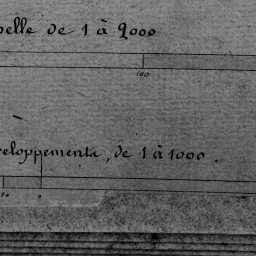 pelle de 1 à 2000
100
veloppements, de 1 à 1000.
10 0